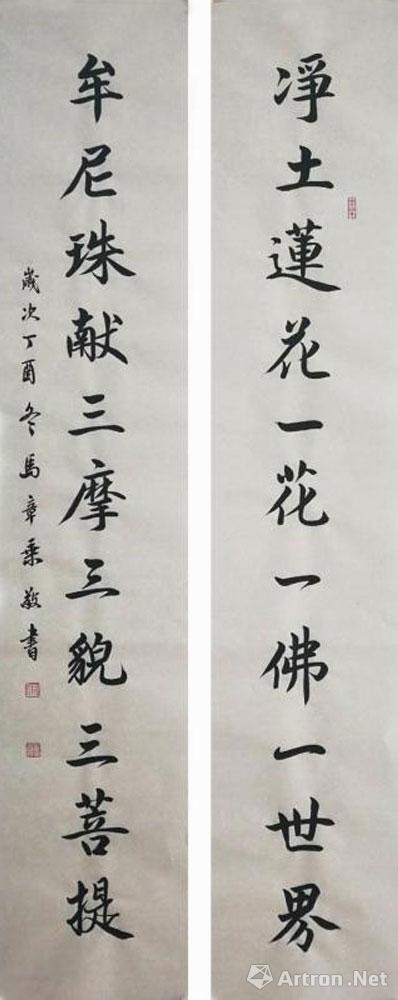 凈土蓮花一花一佛一世界
牟尼珠献三摩三貌三菩提
歲次丁酉冬馬章乘敬書
Artron.Net